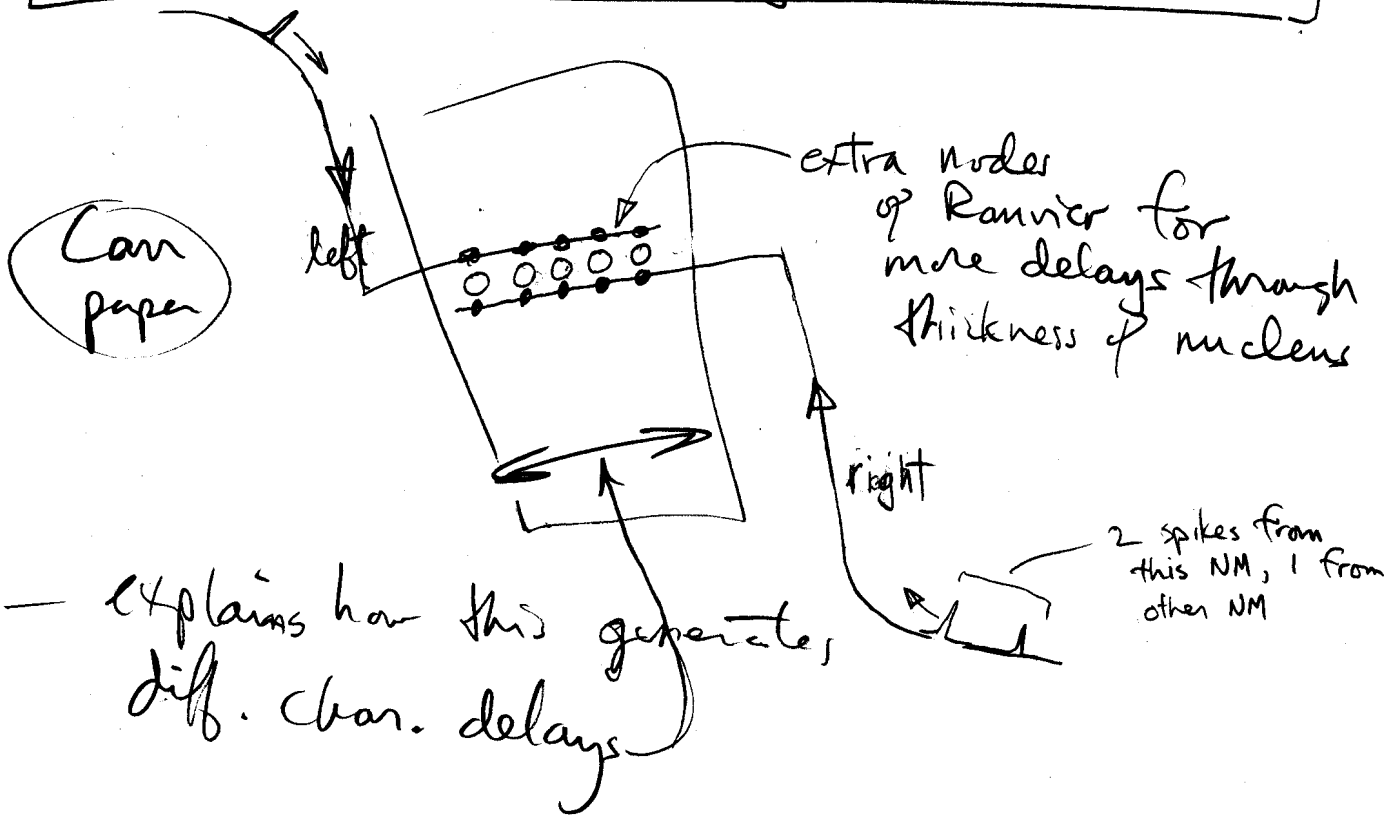 left
Carr
paper
extra nodes
of Ranvier for
more delays through
thickness of nucleus
right
2 spikes from
this NM, 1 from
other NM
— explains how this generates
diff. char. delays